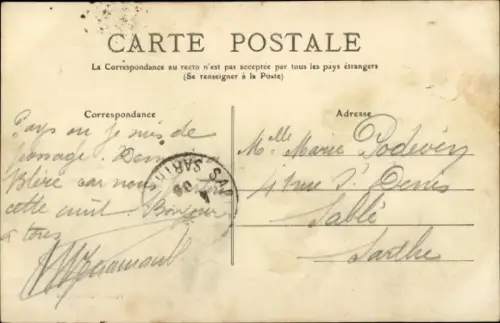 CARTE POSTALE
La Correspondance au recto n'est pas acceptée par tous les pays étrangers
(Se renseigner à la Poste)
Correspondance
Pays ou je suis de
Bléré car nous
cette nuit. Bonjour
à tous
SARTHE
Adresse
Mlle Marie Podevin
41 rue St Denis
Sablé
Sarthe